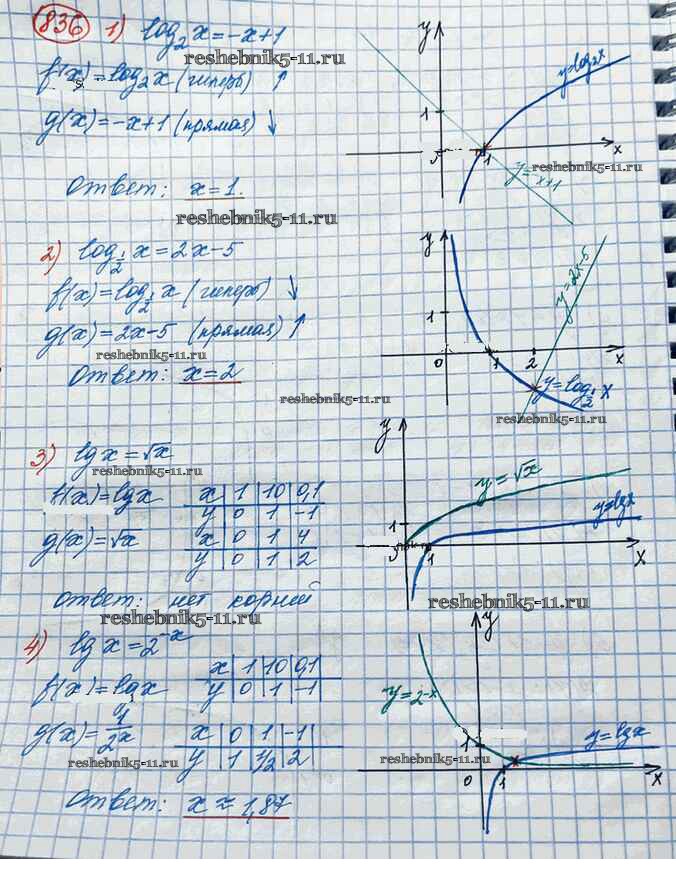 836 1) log₂x = -x+1
f(x) = log₂x (гиперб) ↑
g(x) = -x+1 (прямая) ↓
Ответ: x=1.
y
1
y=log₂x
0 1 x
y=-x+1
2) log½ x = 2x-5
f(x) = log½ x (гиперб) ↓
g(x) = 2x-5 (прямая) ↑
Ответ: x=2
y
1
y=2x-5
0 1 2 x
y=log½ x
3) lg x = √x
f(x) = lg x
x | 1 | 10 | 0,1
y | 0 | 1 | -1
g(x) = √x
x | 0 | 1 | 4
y | 0 | 1 | 2
Ответ: нет корней
y
y=√x
1
y=lgx
1 x
4) lg x = 2⁻ˣ
f(x) = lg x
x | 1 | 10 | 0,1
y | 0 | 1 | -1
g(x) = 1/2ˣ
x | 0 | 1 | -1
y | 1 | 1/2 | 2
Ответ: x ≈ 1,87
y
y=2⁻ˣ
1
y=lgx
0 1 x
reshebnik5-11.ru
reshebnik5-11.ru
reshebnik5-11.ru
reshebnik5-11.ru
reshebnik5-11.ru
reshebnik5-11.ru
reshebnik5-11.ru
reshebnik5-11.ru
reshebnik5-11.ru
reshebnik5-11.ru